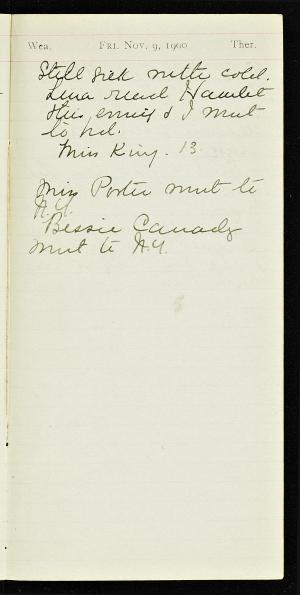 Wea. FRI. NOV. 9, 1900 Ther.
Still sick with cold.
Lena read Hamlet
this evning & I went
to bed.
Miss King. 13.
Miss Porter went to
N.Y.
Bessie Canady
went to N.Y.